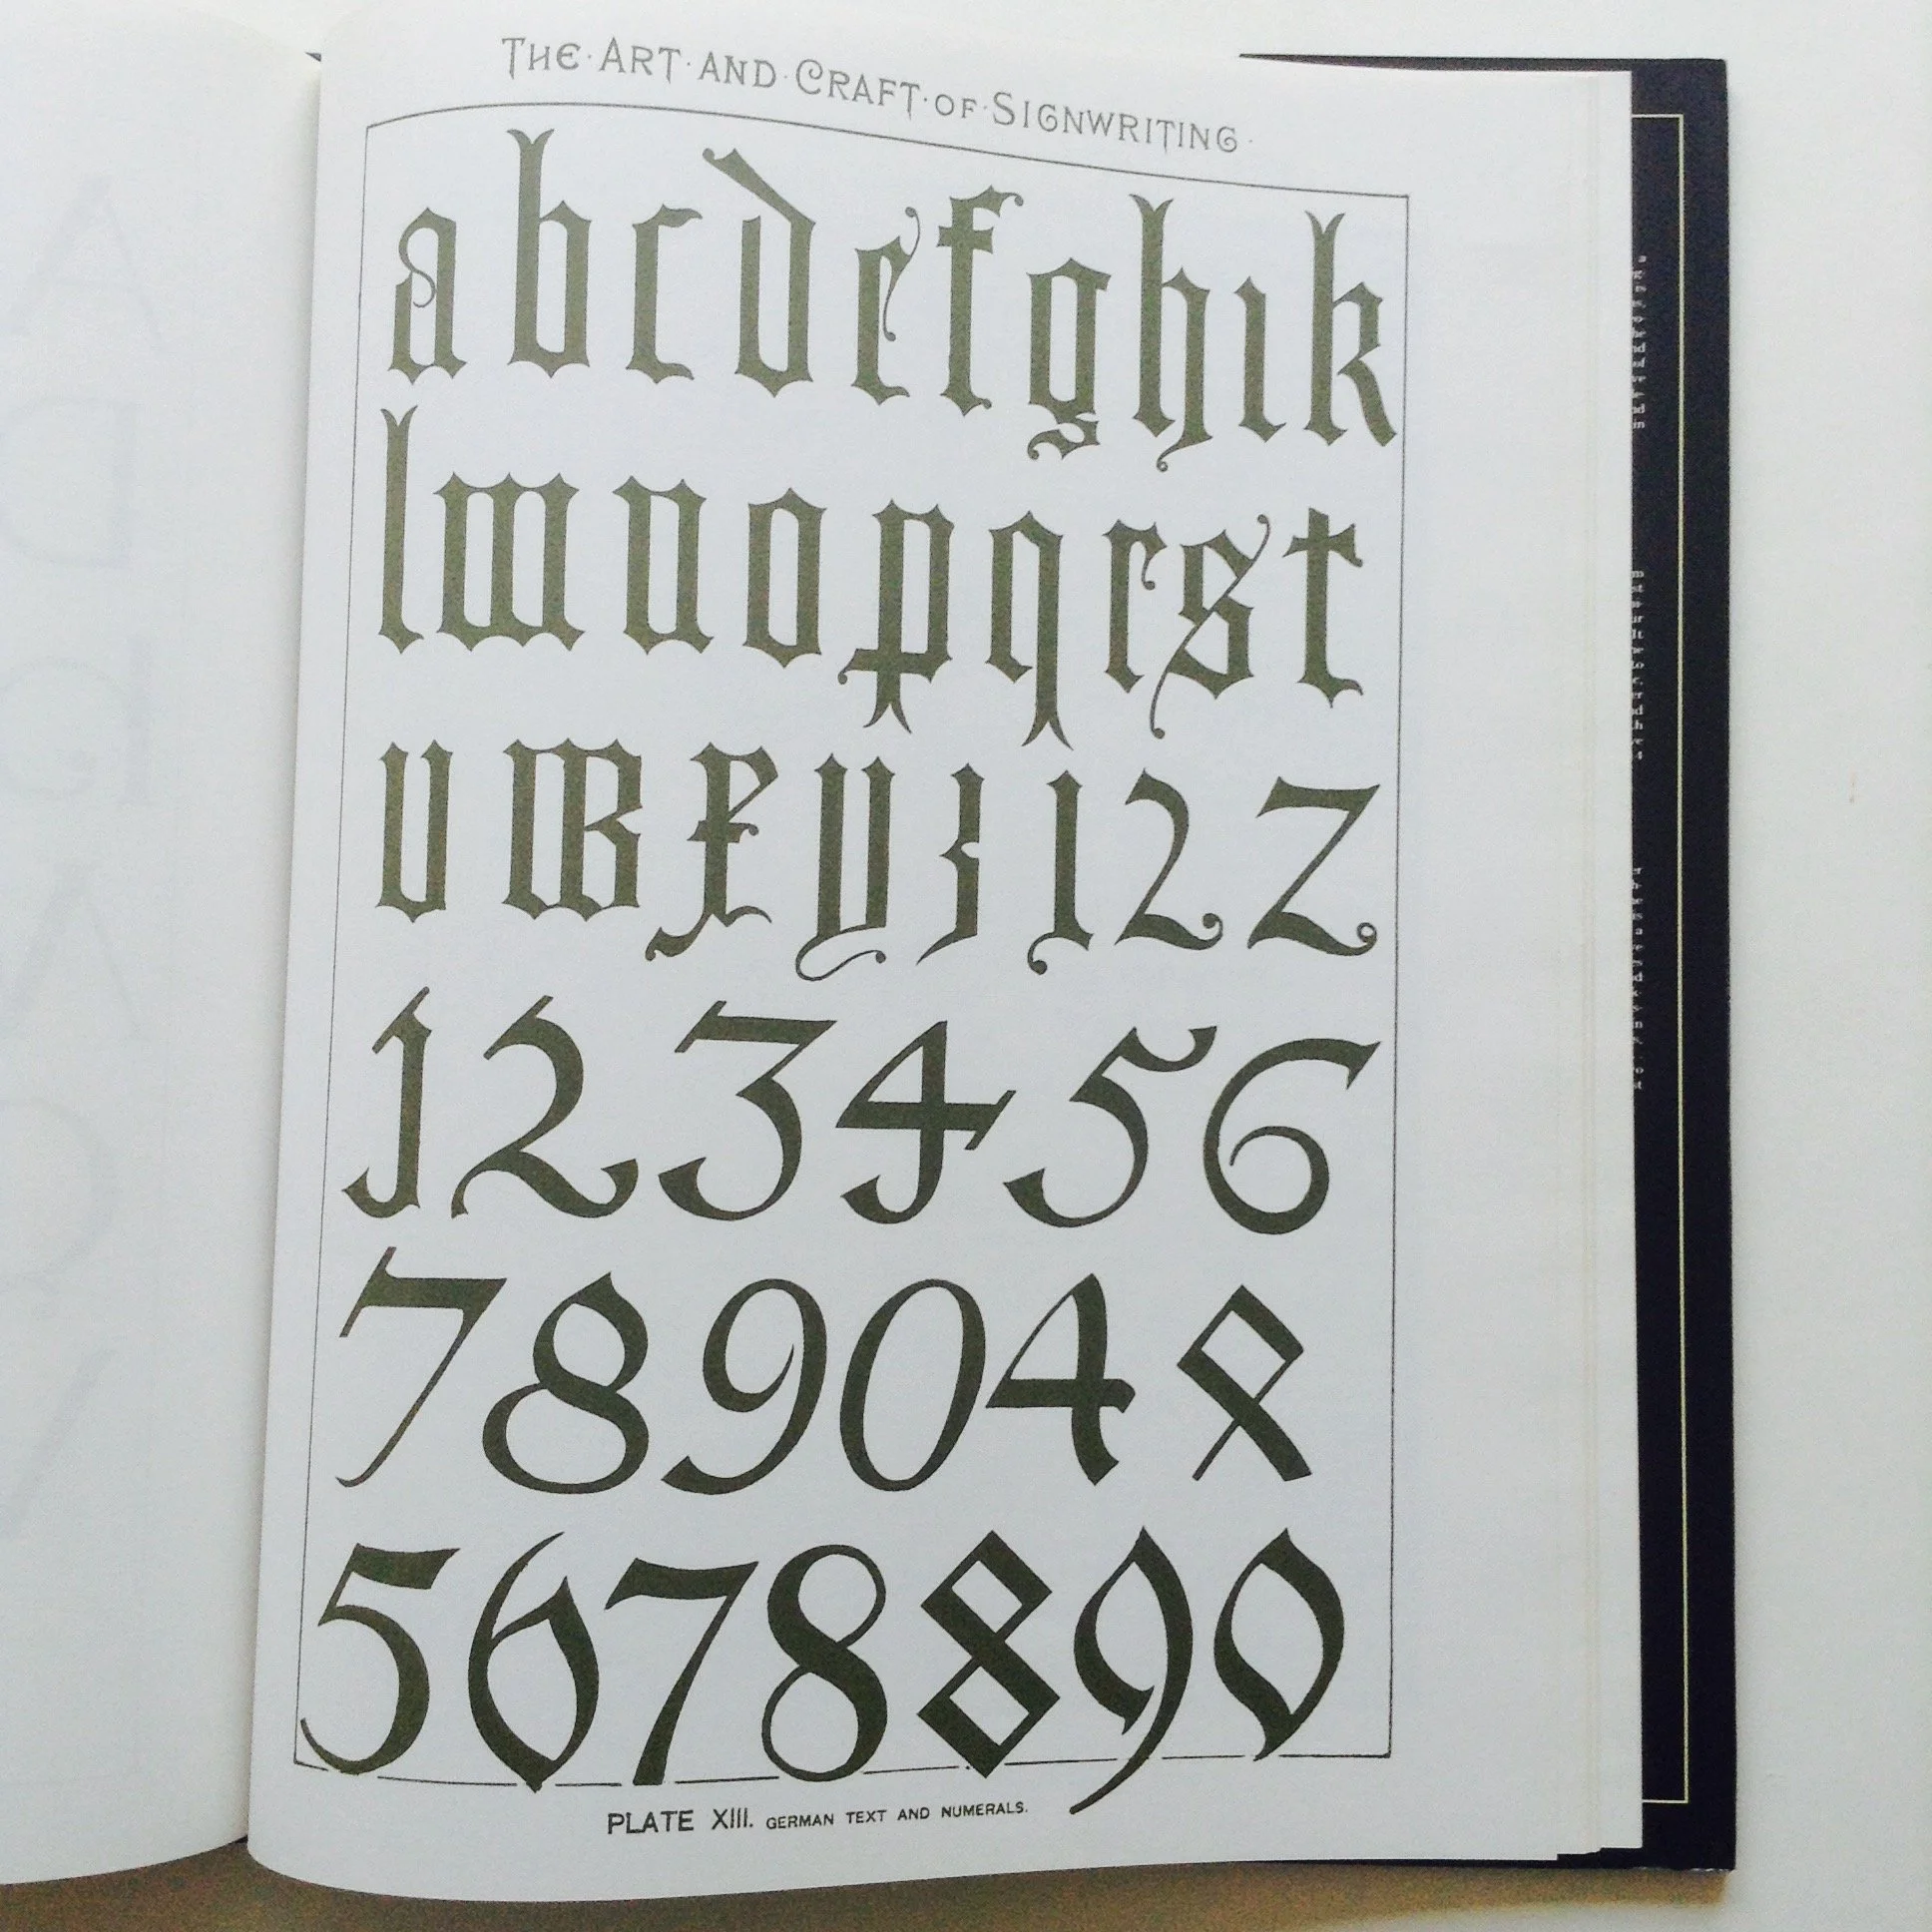 THE·ART·AND·CRAFT·OF·SIGNWRITING·
abcdefghik
lmnopqrst
uwxyzj2Z
123456
789044
5678890
PLATE XIII. GERMAN TEXT AND NUMERALS.